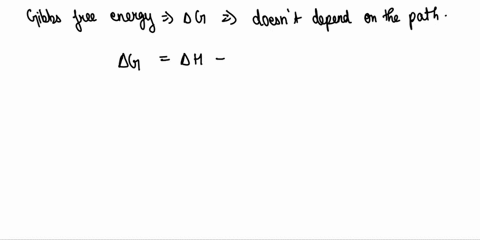 Gibbs free energy ⇒ ΔG ⇒ doesn't depend on the path.
ΔG = ΔH -